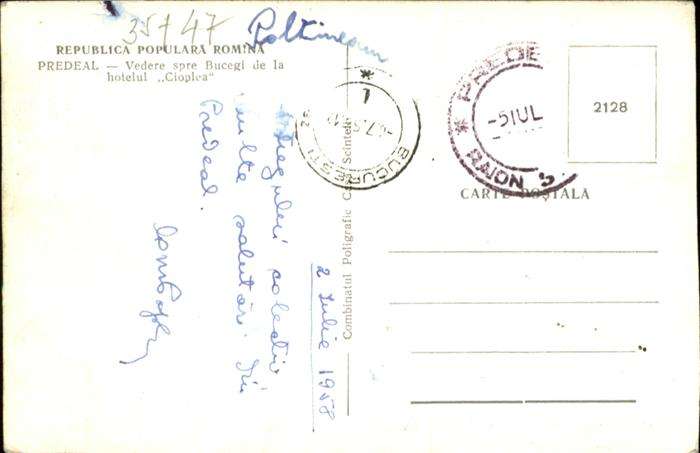 35+47
REPUBLICA POPULARĂ ROMÎNĂ
PREDEAL — Vedere spre Bucegi de la
hotelul „Cioplea"
Întregului colectiv
multe salutări din
Predeal.
2 Iulie 1958
Combinatul Poligrafic Casa Scînteii
BUCUREȘTI
1
PREDE
-5IUL
RAION
2128
CARTE POȘTALĂ